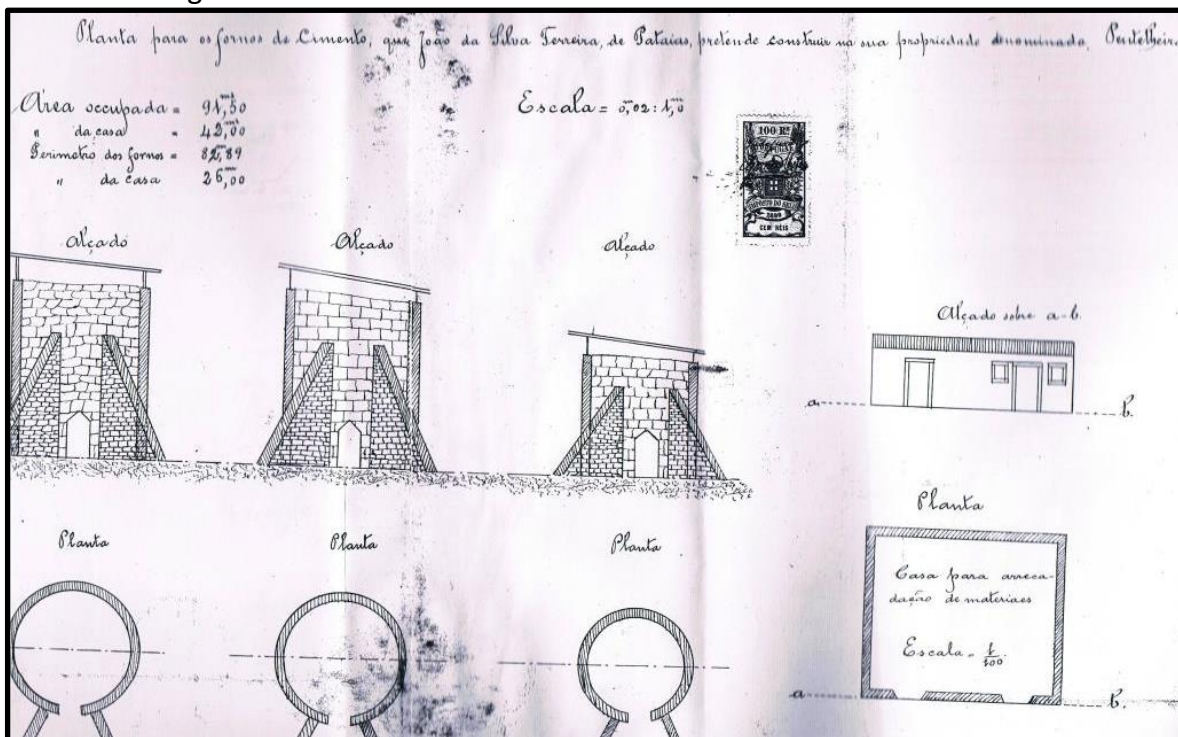 Planta para os fornos de Cimento, que João da Silva Ferreira, de Pataias, pretende construir na sua propriedade denominada,
Área occupada = 91,50
" da casa = 42,00
Perimetro dos fornos = 82,89
" da casa 26,00
Escala = 0,02:1,0
100 Rs
IMPOSTO DO SELLO
CEM RÉIS
Alçado
Alçado
Alçado
Alçado sobre a-b.
a
b.
Planta
Planta
Planta
Planta
Casa para arreca-
dação de materiaes
Escala = 1/100
a
b.